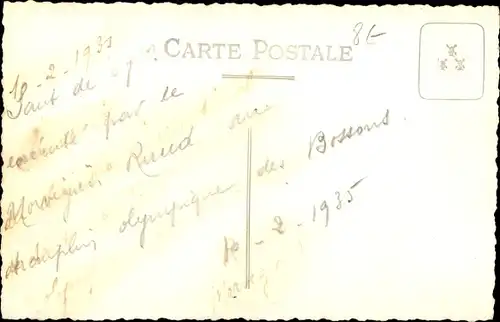 CARTE POSTALE
8E
10-2-1935
Saut de
exécuté par le
Norvégien Ruud au
olympique des Bossons
10-2-1935